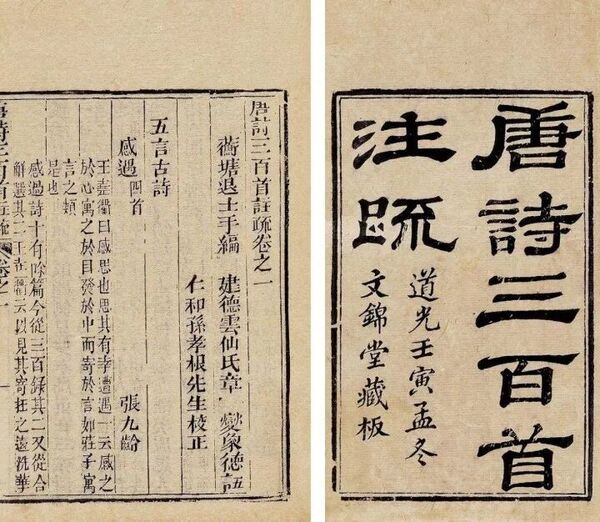 唐詩三百首
注疏
道光壬寅孟冬
文錦堂藏板
唐詩三百首註疏卷之一
蘅塘退士手編
建德雲仙氏章燮象德註
仁和孫孝根先生校正
五言古詩
感遇四首
張九齡
王堯衢曰感思也思其有幸遭遇一云感之
於心寓之於目發於中而寄於言如莊子寓
言之類
是也
感遇詩十有餘篇今從三百錄其二又從合
解選其二王堯衢云以見其寄托之遠洗華
唐詩三百首註疏 卷之一